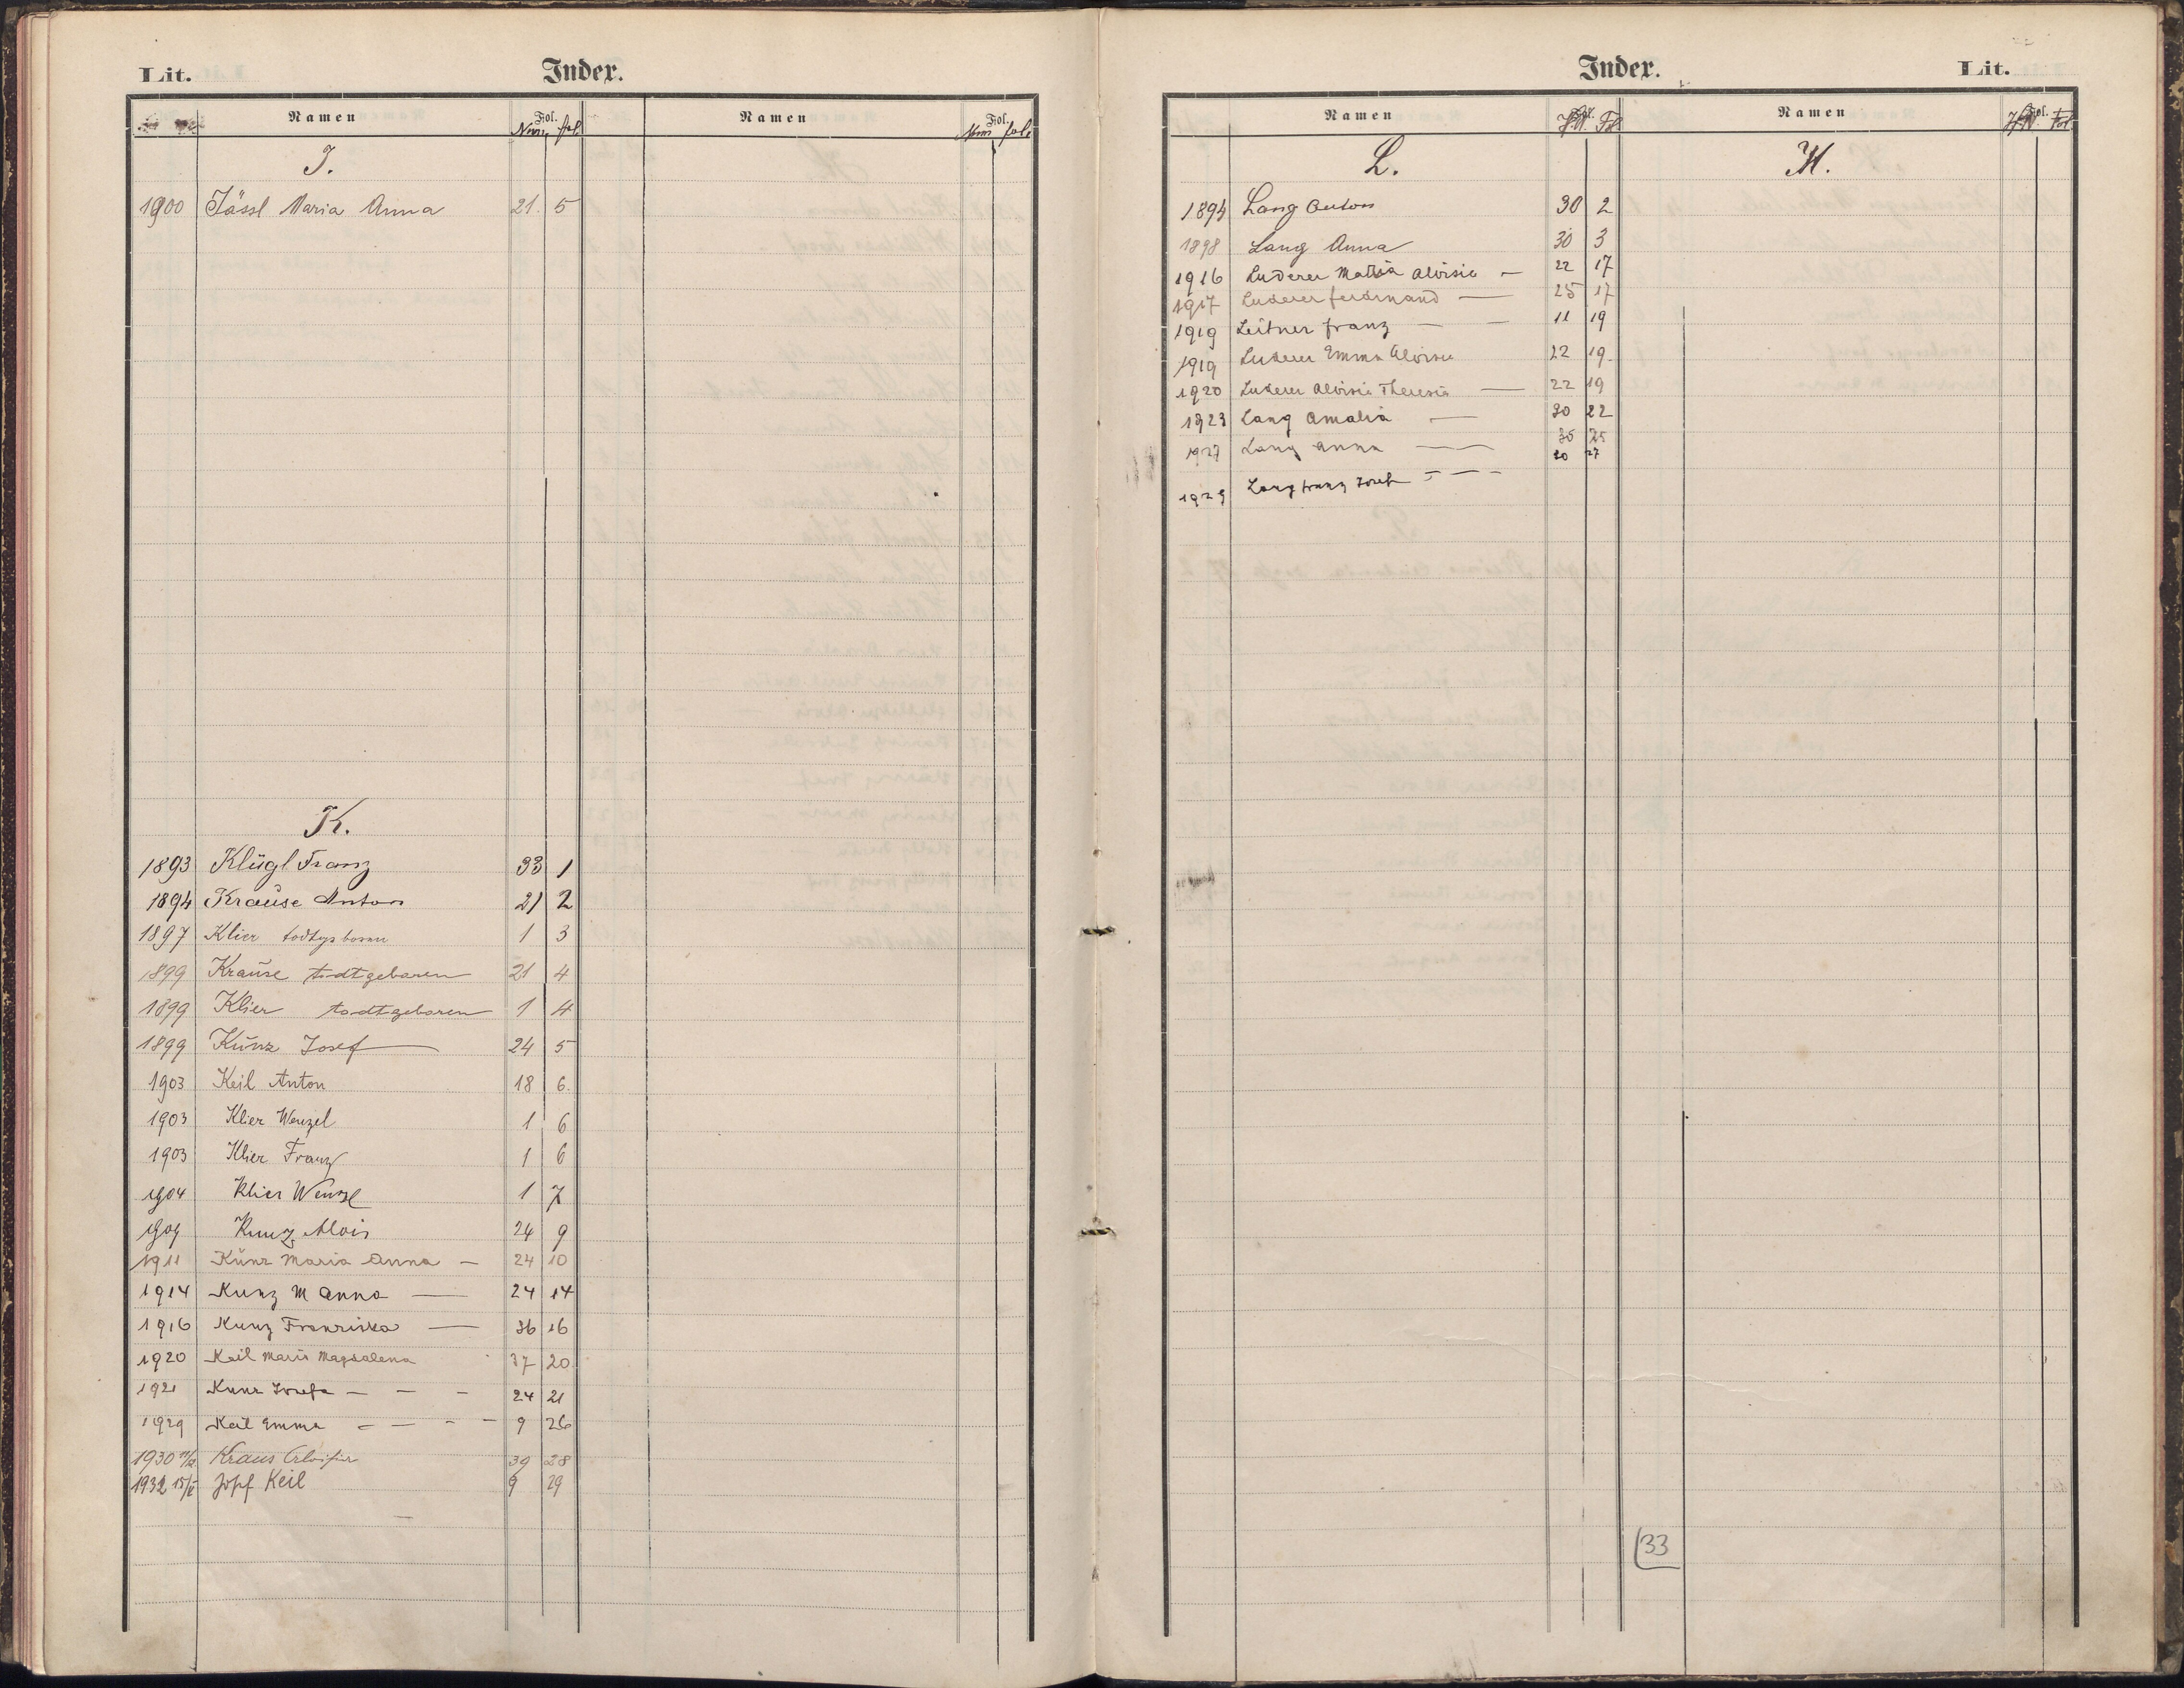 Lit. Index.
Namen Fol. Num. fol. Namen Fol. Num fol.
J.
1900 Jässl Maria Anna 21. 5
K.
1893 Klügl Franz 33 1
1894 Krause Anton 21 2
1897 Klier todtgeboren 1 3
1899 Krause todtgeboren 21 4
1899 Klier todtgeboren 1 4
1899 Kunz Josef 24 5
1903 Keil Anton 18 6.
1903 Klier Wenzel 1 6
1903 Klier Franz 1 6
1904 Klier Wenzl 1 7
1909 Kunz Alois 24 9
1911 Kunz Maria Anna – 24 10
1914 Kunz M Anna — 24 14
1916 Kunz Franziska — 36 16
1920 Keil Maria Magdalena 37 20
1921 Kunz Josefa – – – 24 21
1929 Keil Emma – – – – 9 26
1930 Kraus Aloisia 39 28
1932 15/V Josef Keil 9 29
Index. Lit.
Namen Fol. Fol. Namen Fol. Fol.
L. M.
1894 Lang Anton 30 2
1898 Lang Anna 30 3
1916 Luderer Maria Aloisia – 22 17
1917 Luderer Ferdinand — 25 17
1919 Leitner Franz – – 11 19
1919 Luderer Emma Aloisia 22 19.
1920 Luderer Aloisia Theresia — 22 19
1923 Lang Amalia — 30 22
1927 Lang Anna — 30 25
1929 Lang Franz Josef – – – 20 27
33